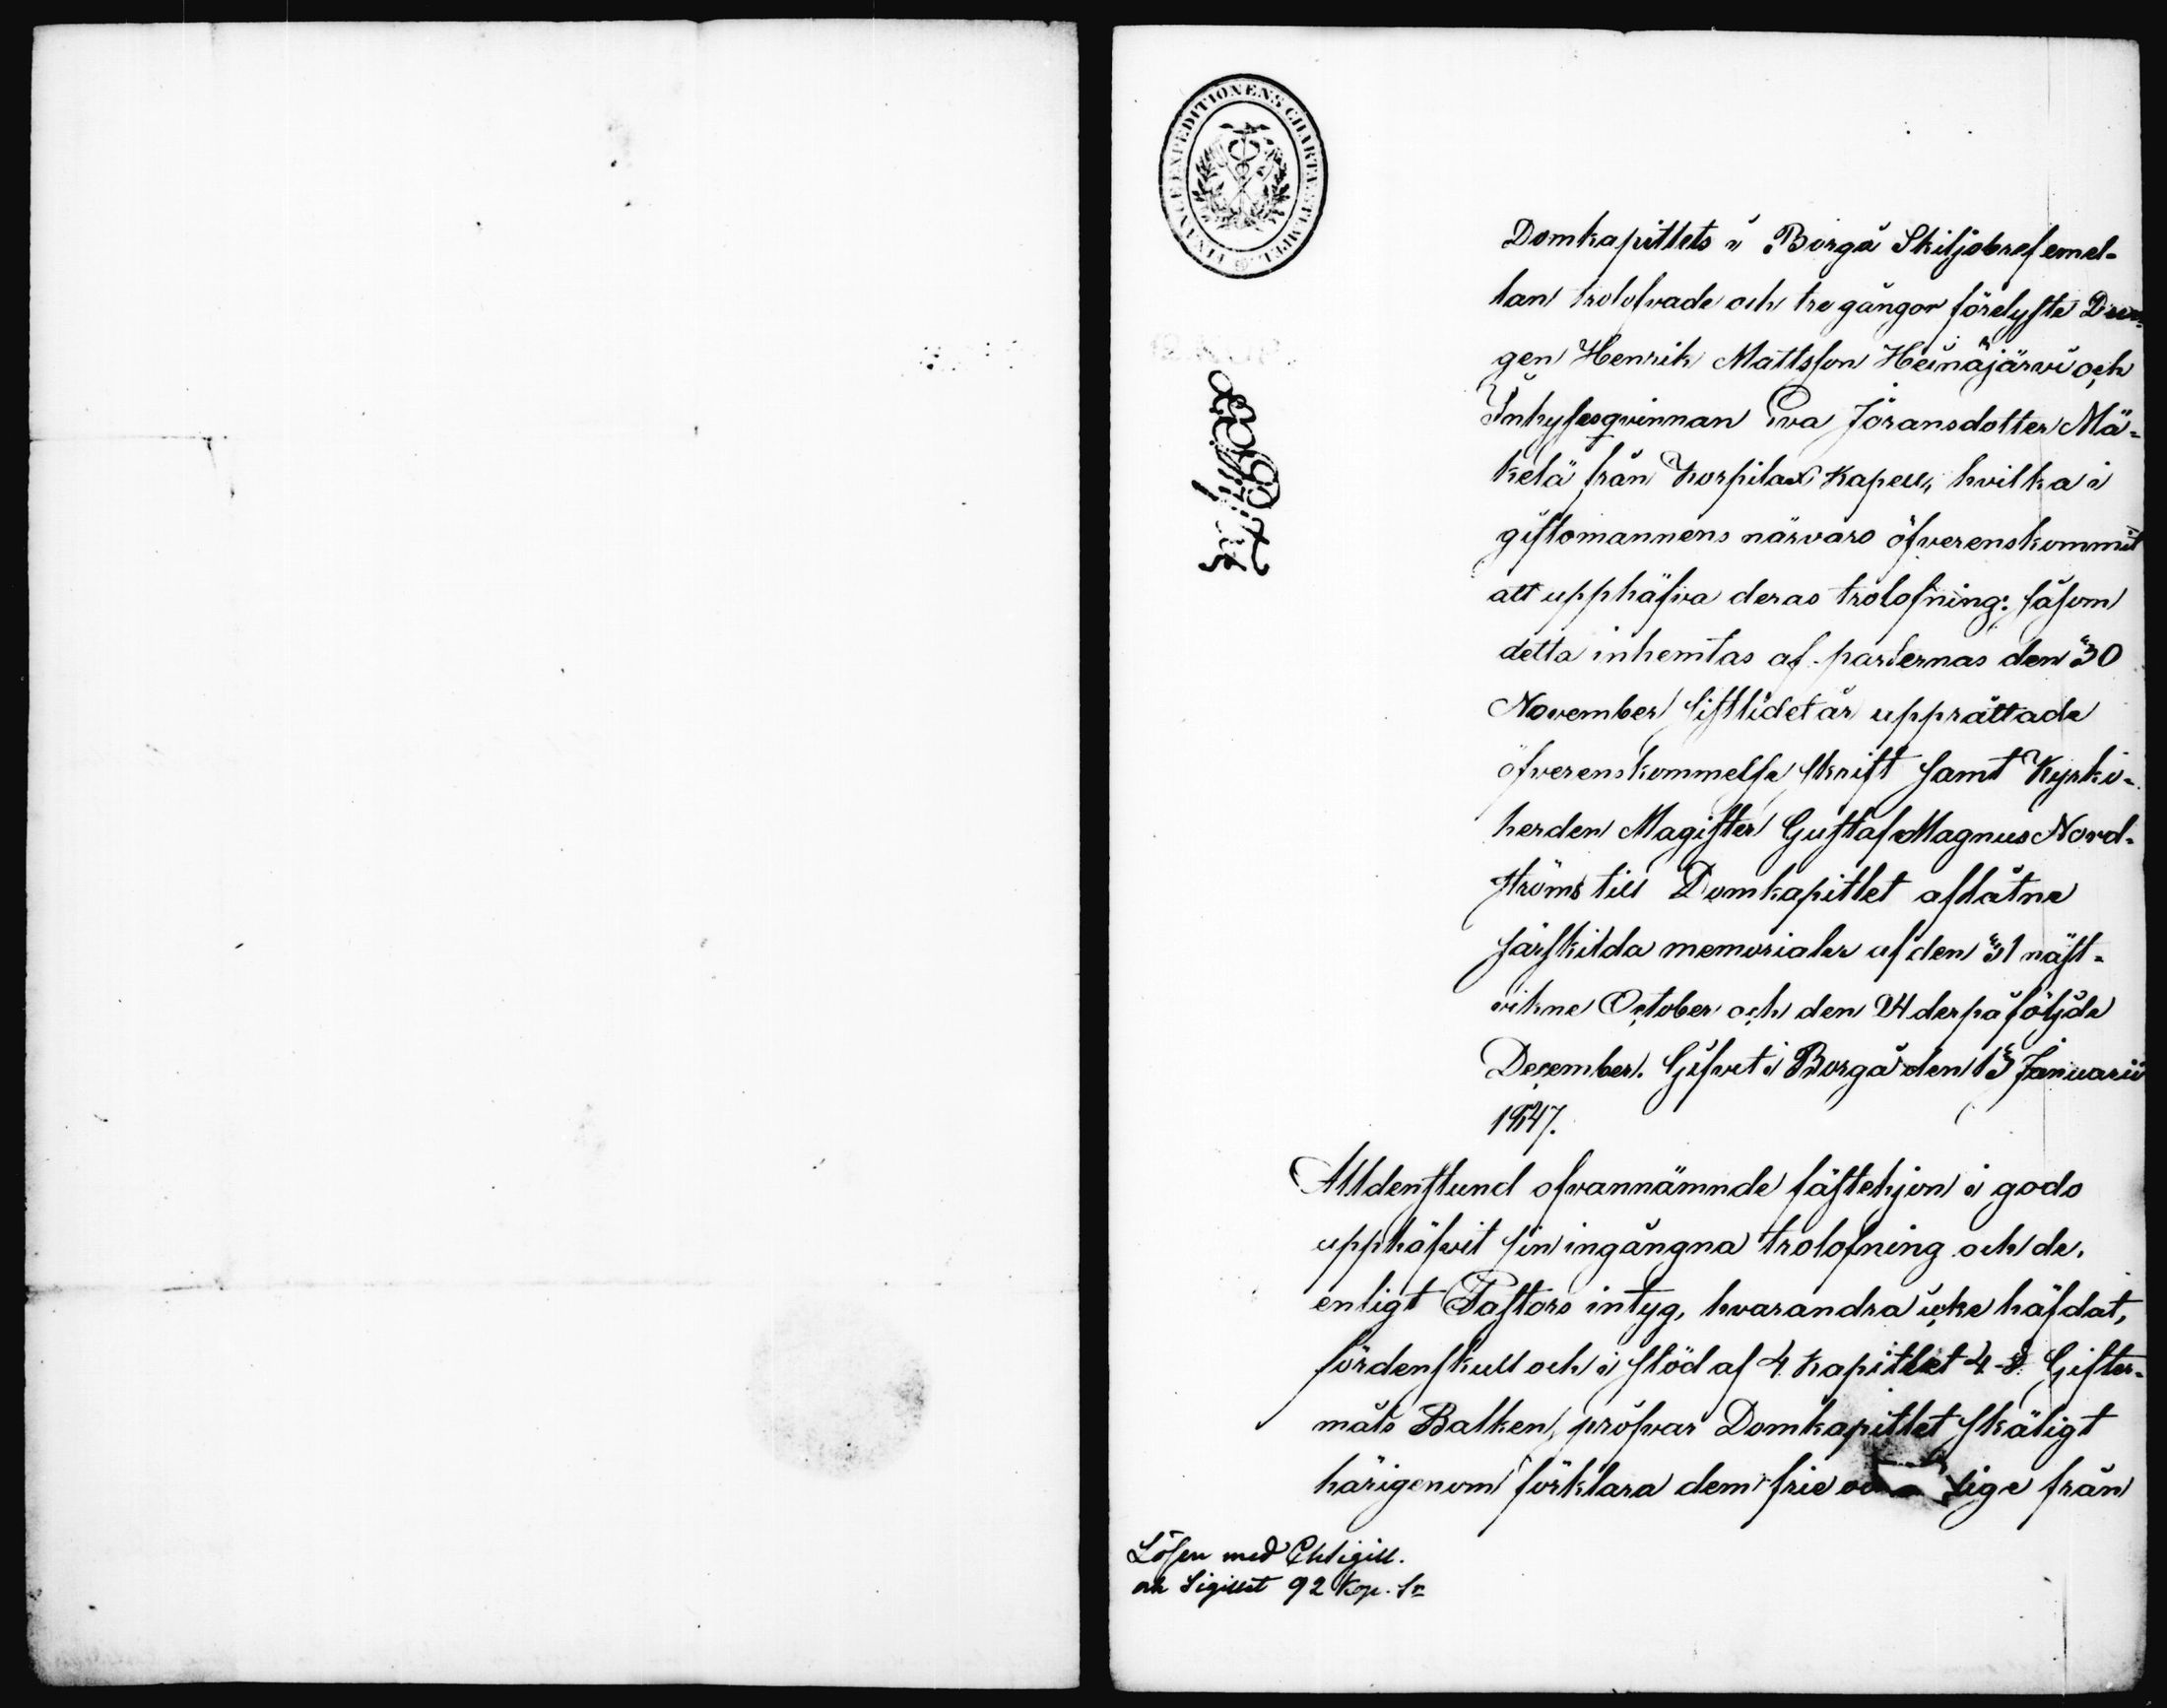 FINANCE EXPEDITIONENS CHARTÆ STEMPEL.
Domkapitlets i Borgå Skiljobref emel-
lan trolofvade och tre gångor förelyste Dren-
gen Henrik Mattsson Heinäjärvi och
Inhysesqvinnan Eva Jöransdotter Mä-
kelä från Korpilax Kapell, hvilka i
giftomannens närvaro öfverenskommit
att upphäfva deras trolofning: såsom
detta inhemtas af parternas den 30
November sistlidet år upprättade
öfverenskommelse skrift samt Kyrko-
herden Magister Gustaf Magnus Nord-
ströms till Domkapitlet aflåtne
särskilda memorialer af den 31 näst-
vikne October och den 24 derpåföljde
December. Gifvet i Borgå den 13 Januarii
1847.
Alldenstund ofvannämnde fästehjon i godo
upphäfvit sin ingångna trolofning och de,
enligt Pastors intyg, hvarandra icke häfdat,
fördenskull och i stöd af 4 Kapitlet 4 § Gifter-
måls Balken, pröfvar Domkapitlet skäligt
härigenom förklara dem frie från
Lösen med
och Sigillet 92 Kop. Sr